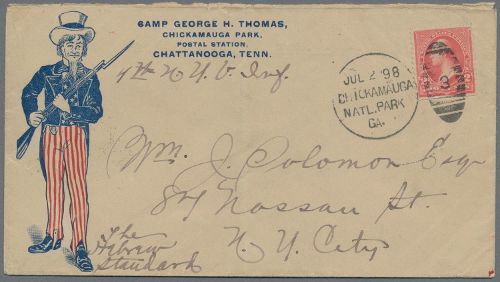 CAMP GEORGE H. THOMAS,
CHICKAMAUGA PARK,
POSTAL STATION,
CHATTANOOGA, TENN.
JUL 2 98
CHICKAMAUGA
NATL. PARK
GA.
3
Wm. J. Solomon Esq
87 Nassau St.
N. Y. City
The
Hebrew
Standard